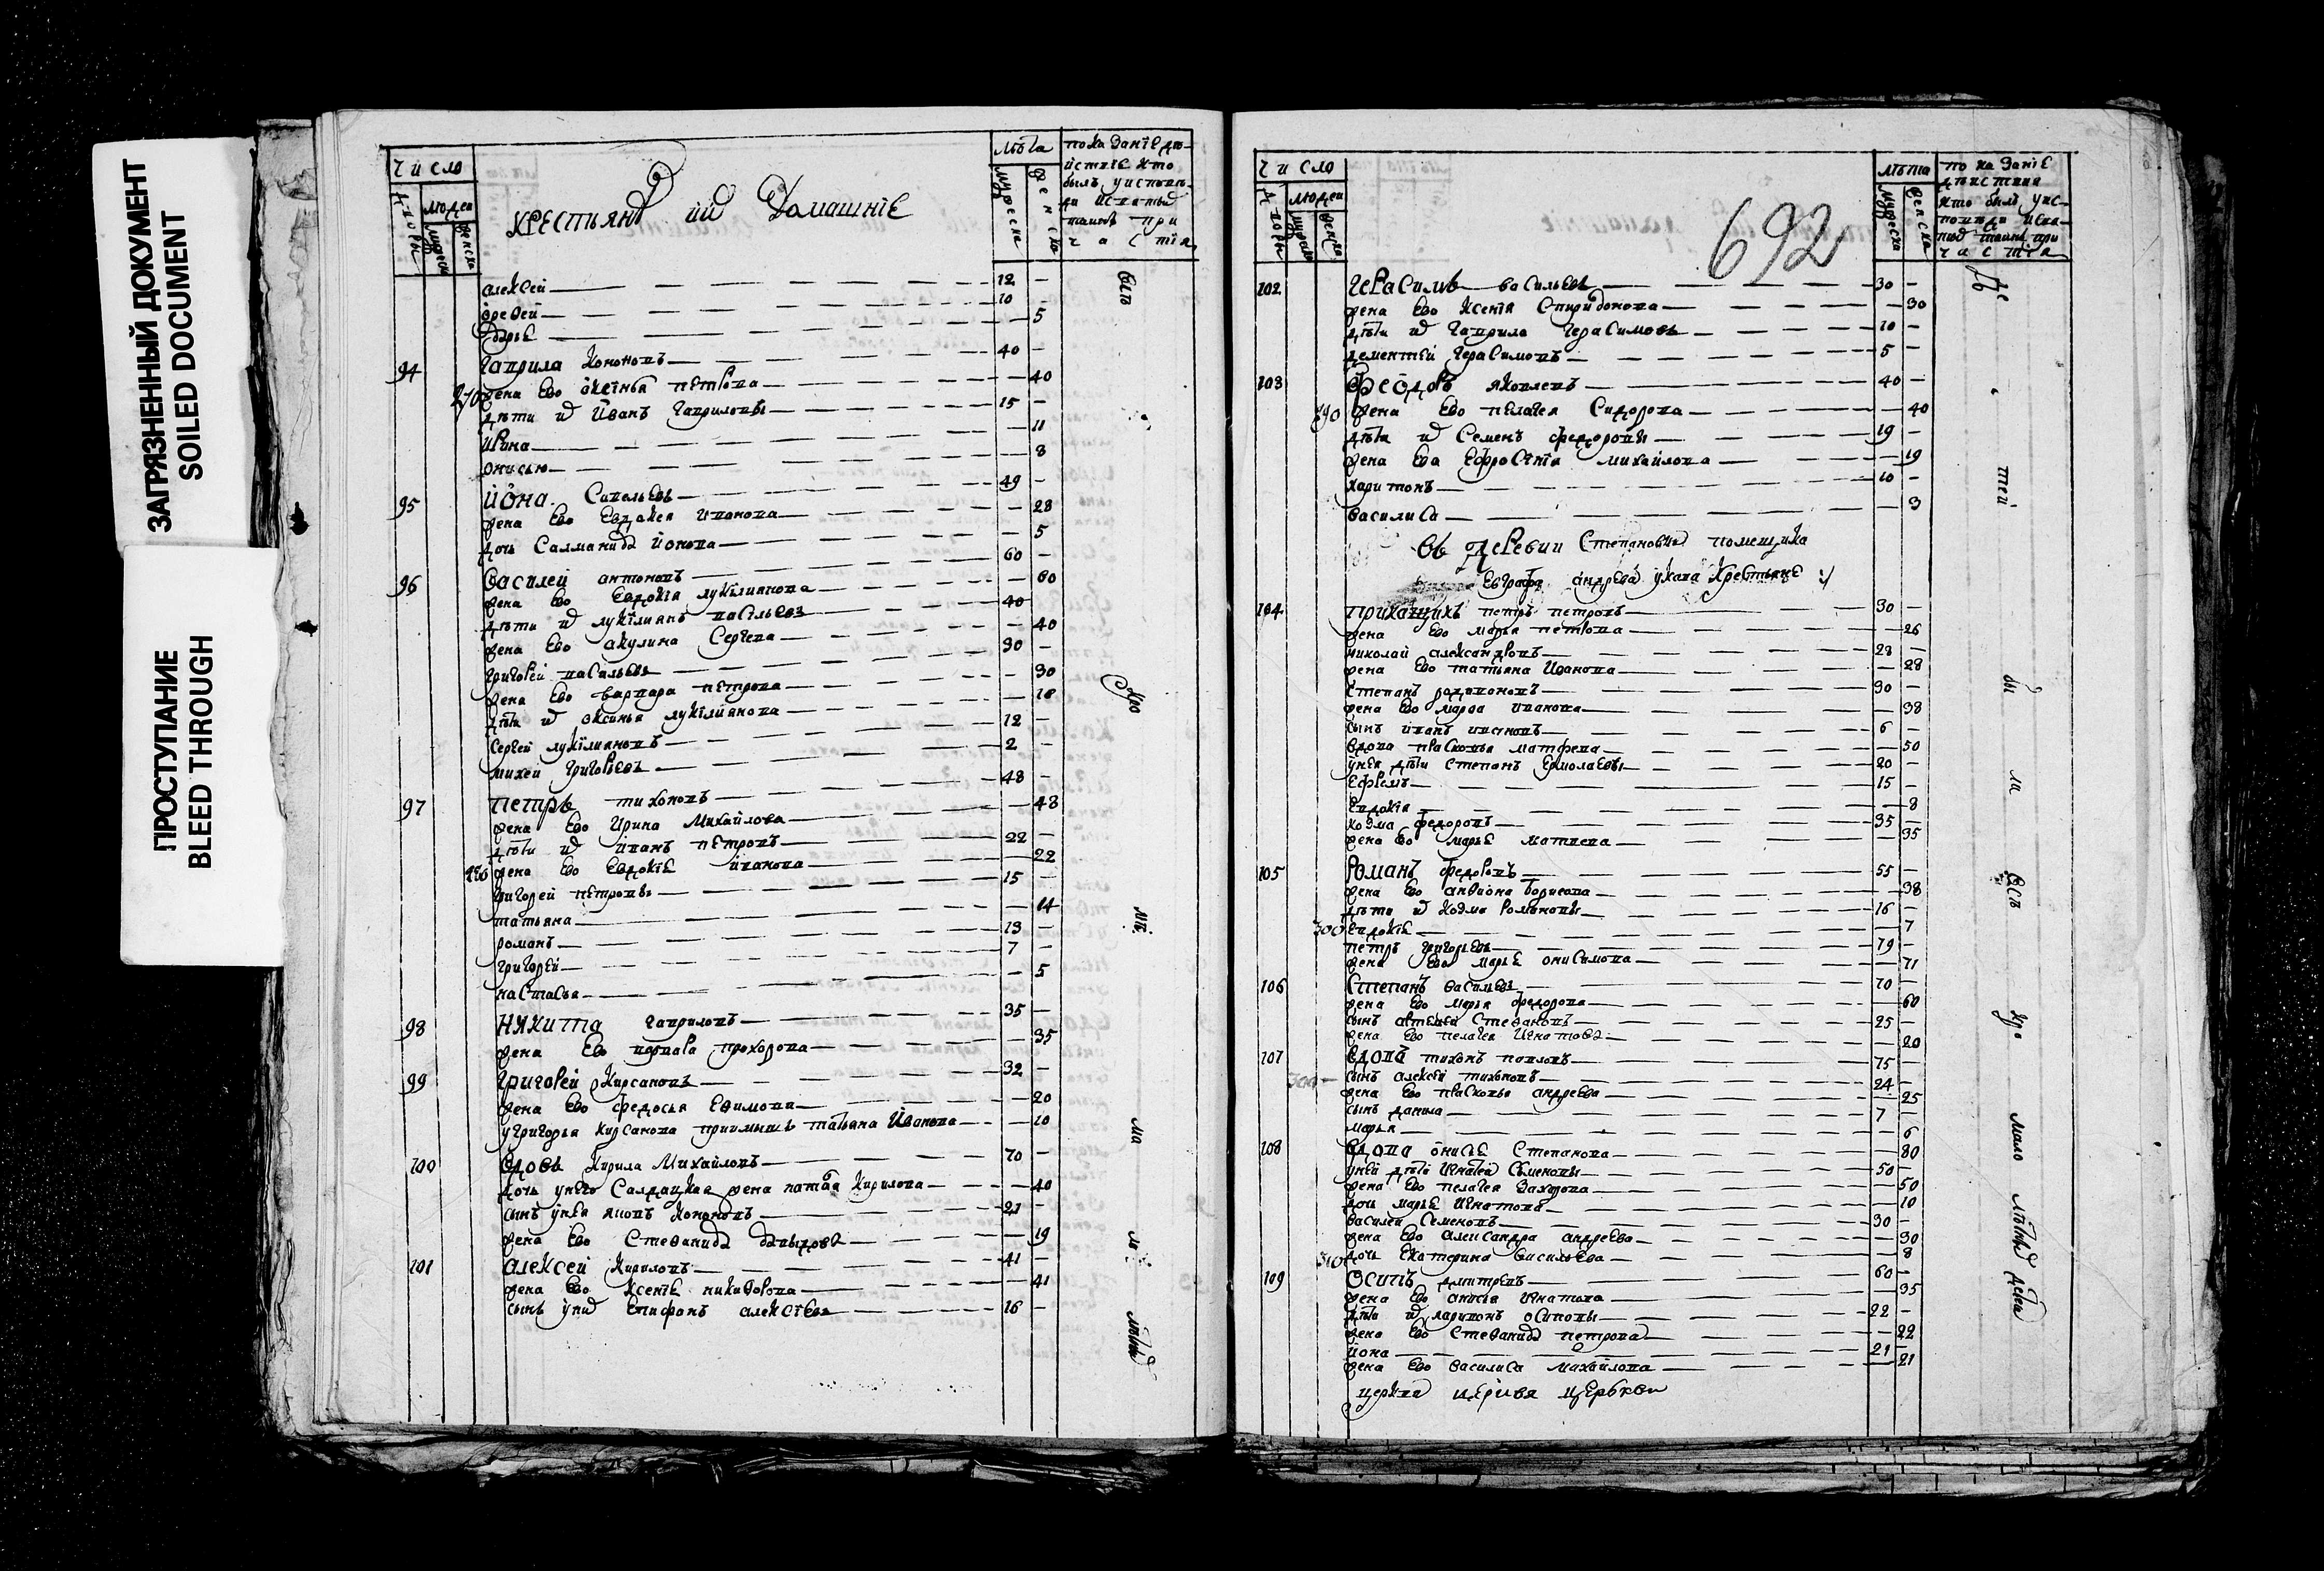 ЗАГРЯЗНЕННЫЙ ДОКУМЕНТ
SOILED DOCUMENT
ПРОСТУПАНИЕ
BLEED THROUGH
число
людей
крестьяня их домашніе
лѣта
мужеска
женска
показаніе дѣ-
были уиспове-
ди исвятых
таинъ при
частія
алексей 12 -
10 -
дарье - 5
94 гаврила кононовъ 40 -
270 жена ево оксінья петрова - 40
дѣти их Иванъ гавриловы 15 -
ирина - 11
онисью - 8
95 иона Савельевъ 49 -
жена ево евдокея иванова - 28
дочь Салманида ионова - 5
96 василей антоновъ 60 -
жена ево евдокія лукиліянова - 60
дѣти их лукиліянъ васильевъ 40 -
жена ево акулина Сергева - 40
григорей васильевъ 30 -
жена ево варвара петрова - 30
дѣти их оксинья лукиліянова - 18
Сергей лукиліяновъ 12 -
михей григорьевъ 2 -
97 петръ тихоновъ 48 -
жена ево Ирина Михайлова - 48
дѣти их иванъ петровъ 22 -
280 жена ево евдокіе иванова - 22
григорей петровы 15 -
татьяна - 14
романъ 13 -
григорей 7 -
настасья - 5
98 никита гавриловъ 35 -
жена ево варвара прохорова - 35
99 григорей Кирсановъ 32 -
жена ево федосья ефимова - 20
угригорья кирсанова приимышъ татьяна Иванова - 10
100 вдовъ Кирила Михайловъ 70 -
дочь унего Салдацкая жена Кирилова - 40
сынъ унея Кононовъ 21 -
жена ево Стефанида давыдова - 19
101 алексей Кириловъ 41 -
жена ево Ксеніе никифорова - 41
сынъ уних епифанъ алексѣевъ 16 -
были
Кро
мѣ
ма
ло
лѣтных
число
людей
692
лѣта
мужеска
женска
показаніе
дѣиствия
кто былъ уис-
поведи исвя-
тых таинъ при
частія
102 герасимъ васильевъ 30 -
жена ево Ксенія Спиридонова - 30
дѣти их гаврила герасимовъ 10 -
дементей герасимовъ 5 -
103 феодоръ яковлевъ 40 -
290 жена ево пелагея Сидорова - 40
дѣти их Семенъ федоровы 19 -
жена ева ефросинія михайлова - 19
харитонъ 10 -
василиса - 3
въ деревни Степановки помещика
евграфа крестьяне :/
104 прикащикъ петръ петровъ 30 -
жена ево марья петрова - 26
николай александровъ 28 -
жена ево татьяна Иванова - 28
Степанъ родивоновъ 30 -
жена ево марфа иванова - 38
сынъ иванъ ивановъ 6 -
вдова прасковья матфева - 50
унея дѣти Степанъ ермолаевы 20 -
ефремъ 15 -
евдокія - 8
козма федоровъ 35 -
жена ево марье матвева - 35
105 романъ федоровъ 55 -
жена ево борисова - 38
дѣти их козма романовы 16 -
300 евдокіе - 7
петръ григорьевъ 79 -
жена ево марье онисимова - 71
106 Степанъ васильевъ 70 -
жена ево марья федорова - 60
сынъ Стефановъ 25 -
жена ево пелагея Игнатова - 20
107 вдовъ тихонъ павловъ 75 -
сынъ алексей тихоновъ 24 -
жена ево прасковья андреева - 25
сынъ данила 7 -
марья - 6
108 вдова онисье Степанова - 80
уней дѣти Игнатей Семеновы 50 -
жена ево пелагея захарова - 50
дочь марье Игнатова - 10
василей Семеновъ 30 -
жена ево александра андреева - 30
310 дочь екатерина васильева - 8
109 осипъ дмитревъ 60 -
жена ево анисья Игнатова - 35
дѣти их ларивонъ осиповы 22 -
жена ево Стефанида петрова - 22
иона 21 -
жена ево василиса михайлова - 21
де
тей
бы
ли
всѣ
кро
мало
лѣтных
детей